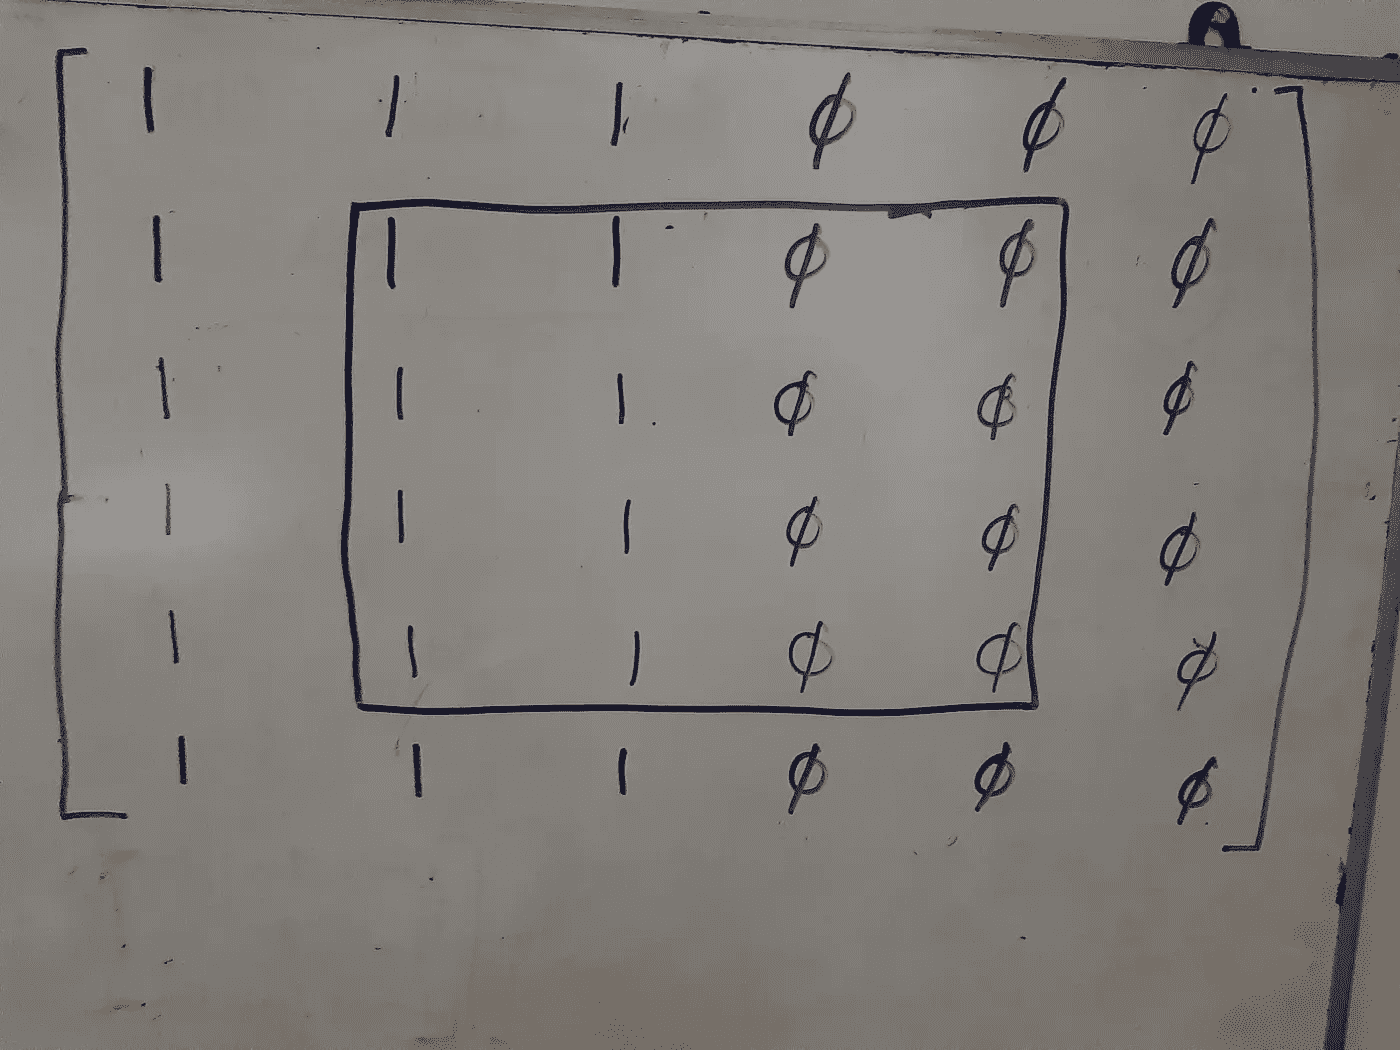 1 1 1 ϕ ϕ ϕ
1 1 1 ϕ ϕ ϕ
1 1 1 ϕ ϕ ϕ
1 1 1 ϕ ϕ ϕ
1 1 1 ϕ ϕ ϕ
1 1 1 ϕ ϕ ϕ